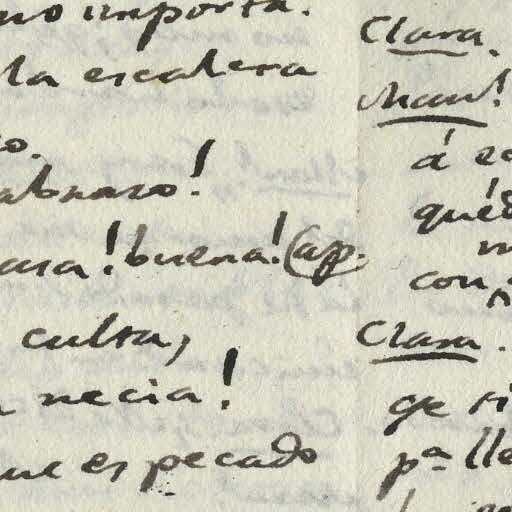 no importa.
la escalera
abraso!
buena! (ap.
culta,
necia!
que es pecado
Clara.
Man!
á
con
Clara.
qe si
pa lle